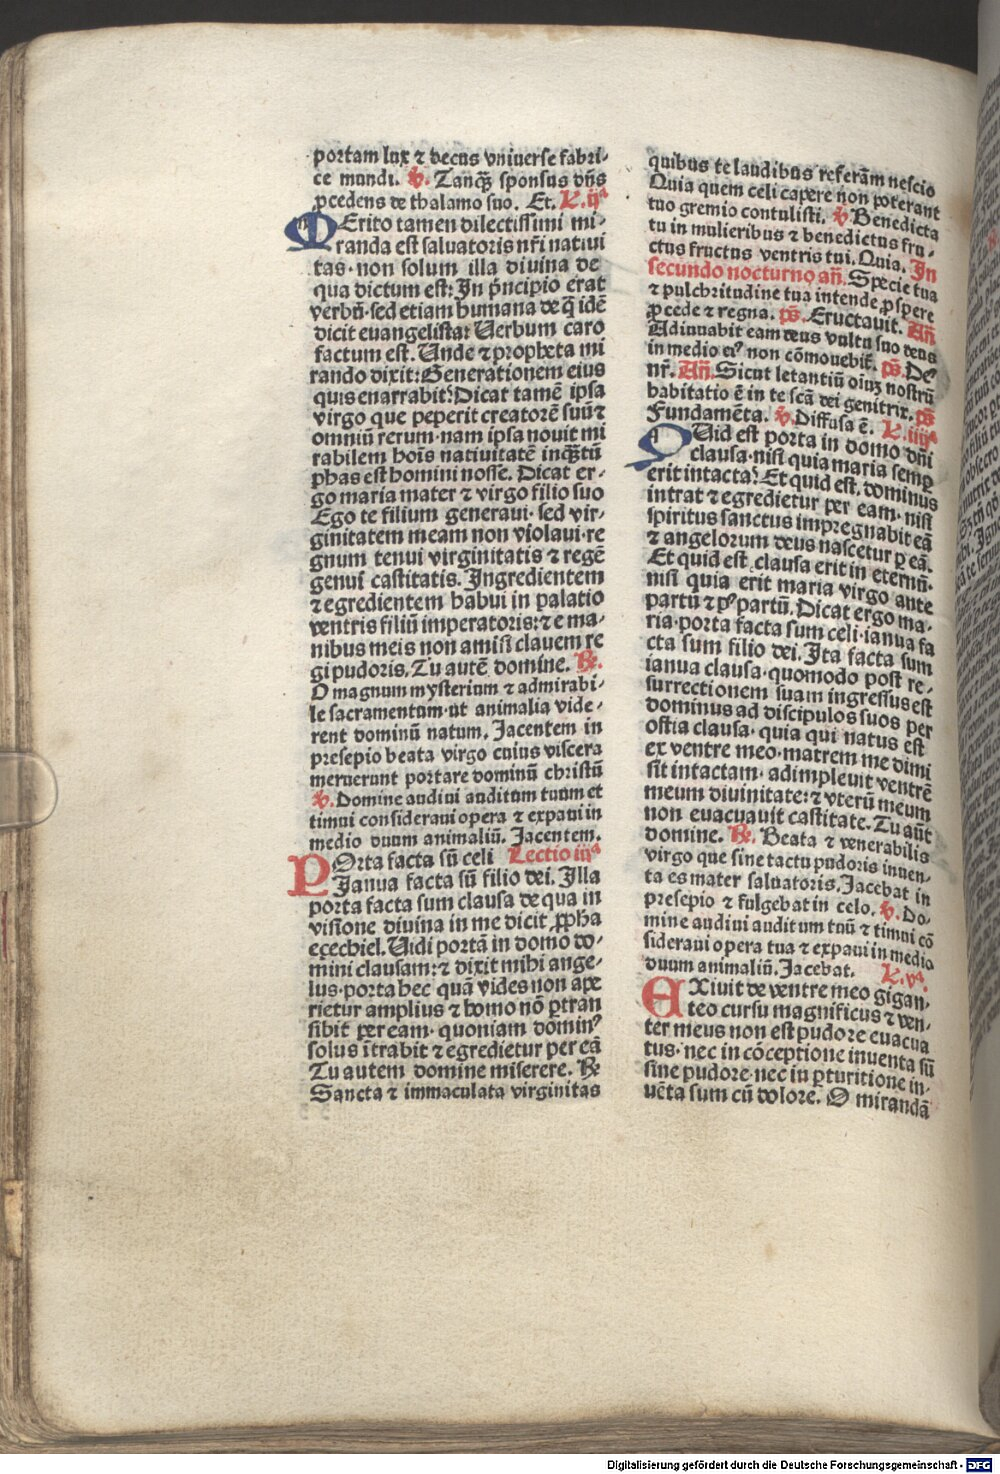 portam lux ⁊ decus vniuerse fabri-
ce mundi. ℣. Tanq̃ sponsus dñs
ꝓcedens de thalamo suo. Et. L. ijª
MErito tamen dilectissimi mi-
randa est saluatoris nr̄i natiui
tas· non solum illa diuina de
qua dictum est: In p̄ncipio erat
verbū· sed etiam humana de q̄ idē
dicit euangelista: Uerbum caro
factum est. Unde ⁊ propheta mi
rando dixit: Generationem eius
quis enarrabit? Dicat tamē ipsa
virgo que peperit creatorē suū ⁊
omniū rerum· nam ipsa nouit mi
rabilem hoīs natiuitatē inq̄ꝫtū
phas est homini nosse. Dicat er-
go maria mater ⁊ virgo filio suo
Ego te filium generaui· sed vir-
ginitatem meam non violaui· re
gnum tenui virginitatis ⁊ regē
genui castitatis. Ingredientem
⁊ egredientem habui in palatio
ventris filiū imperatoris: ⁊ e ma-
nibus meis non amisi clauem re
gi pudoris. Tu autē domine. ℟.
O magnum mysterium ⁊ admirabi-
le sacramentum· ut animalia vide-
rent dominū natum. Jacentem in
presepio beata virgo cuius viscera
meruerunt portare dominū christū
℣. Domine audiui auditum tuum et
timui consideraui opera ⁊ expaui in
medio duum animaliū. Jacentem.
POrta facta sū celi Lectio iijª
Janua facta sū filio dei. Illa
porta facta sum clausa de qua in
visione diuina in me dicit ꝓpha
ecechiel. Uidi portā in domo do-
mini clausam: ⁊ dixit mihi ange-
lus· porta hec quā vides non ape
rietur amplius ⁊ homo nō ꝑtran
sibit per eam· quoniam dominꝰ
solus ītrabit ⁊ egredietur per eā
Tu autem domine miserere. ℟
Sancta ⁊ immaculata virginitas
quibus te laudibus referam nescio
Quia quem celi capere non poterant
tuo gremio contulisti. ℣ Benedicta
tu in mulieribus ⁊ benedictus fru-
ctus fructus ventris tui. Quia. In
secundo nocturno añ. Specie tua
⁊ pulchritudine tua intende ꝓspere
ꝓcede ⁊ regna. ps̄. Eructauit. Añ
Adiuuabit eam deus vultu suo deus
in medio eiꝰ non cōmouebit̄. ps̄. Deꝰ
nr̄. Añ. Sicut letantiū oīuꝫ nostrū
habitatio ē in te scā dei genitrix. ps̄
Fundamēta. ℣. Diffusa ē. L. iiijª
QUid est porta in domo dñi
clausa· nisi quia maria semꝑ
erit intacta? Et quid est. dominus
intrat ⁊ egredietur per eam· nisi
spiritus sanctus impregnabit eā
⁊ angelorum deus nascetur ꝑ eā.
Et quid est clausa erit in eternū·
nisi quia erit maria virgo ante
partū ⁊ pꝰ partū. Dicat ergo ma-
ria· porta facta sum celi· ianua fa
cta sum filio dei. Ita facta sum
ianua clausa· quomodo post re-
surrectionem suam ingressus est
dominus ad discipulos suos per
ostia clausa· quia qui natus est
ex ventre meo· matrem me dimi
sit intactam· adimpleuit ventrē
meum diuinitate: ⁊ vterū meum
non euacuauit castitate. Tu aūt
domine. ℟. Beata ⁊ venerabilis
virgo que sine tactu pudoris inuen-
ta es mater saluatoris. Jacebat in
presepio ⁊ fulgebat in celo. ℣. Do-
mine audiui auditum tuū ⁊ timui cō
sideraui opera tua ⁊ expaui in medio
duum animaliū. Jacebat. L. vª.
EXiuit de ventre meo gigan-
teo cursu magnificus ⁊ ven-
ter meus non est pudore euacua
tus· nec in cōceptione inuenta sū
sine pudore· nec in ꝑturitione in-
uēta sum cū dolore. O mirandā
Digitalisierung gefördert durch die Deutsche Forschungsgemeinschaft - DFG